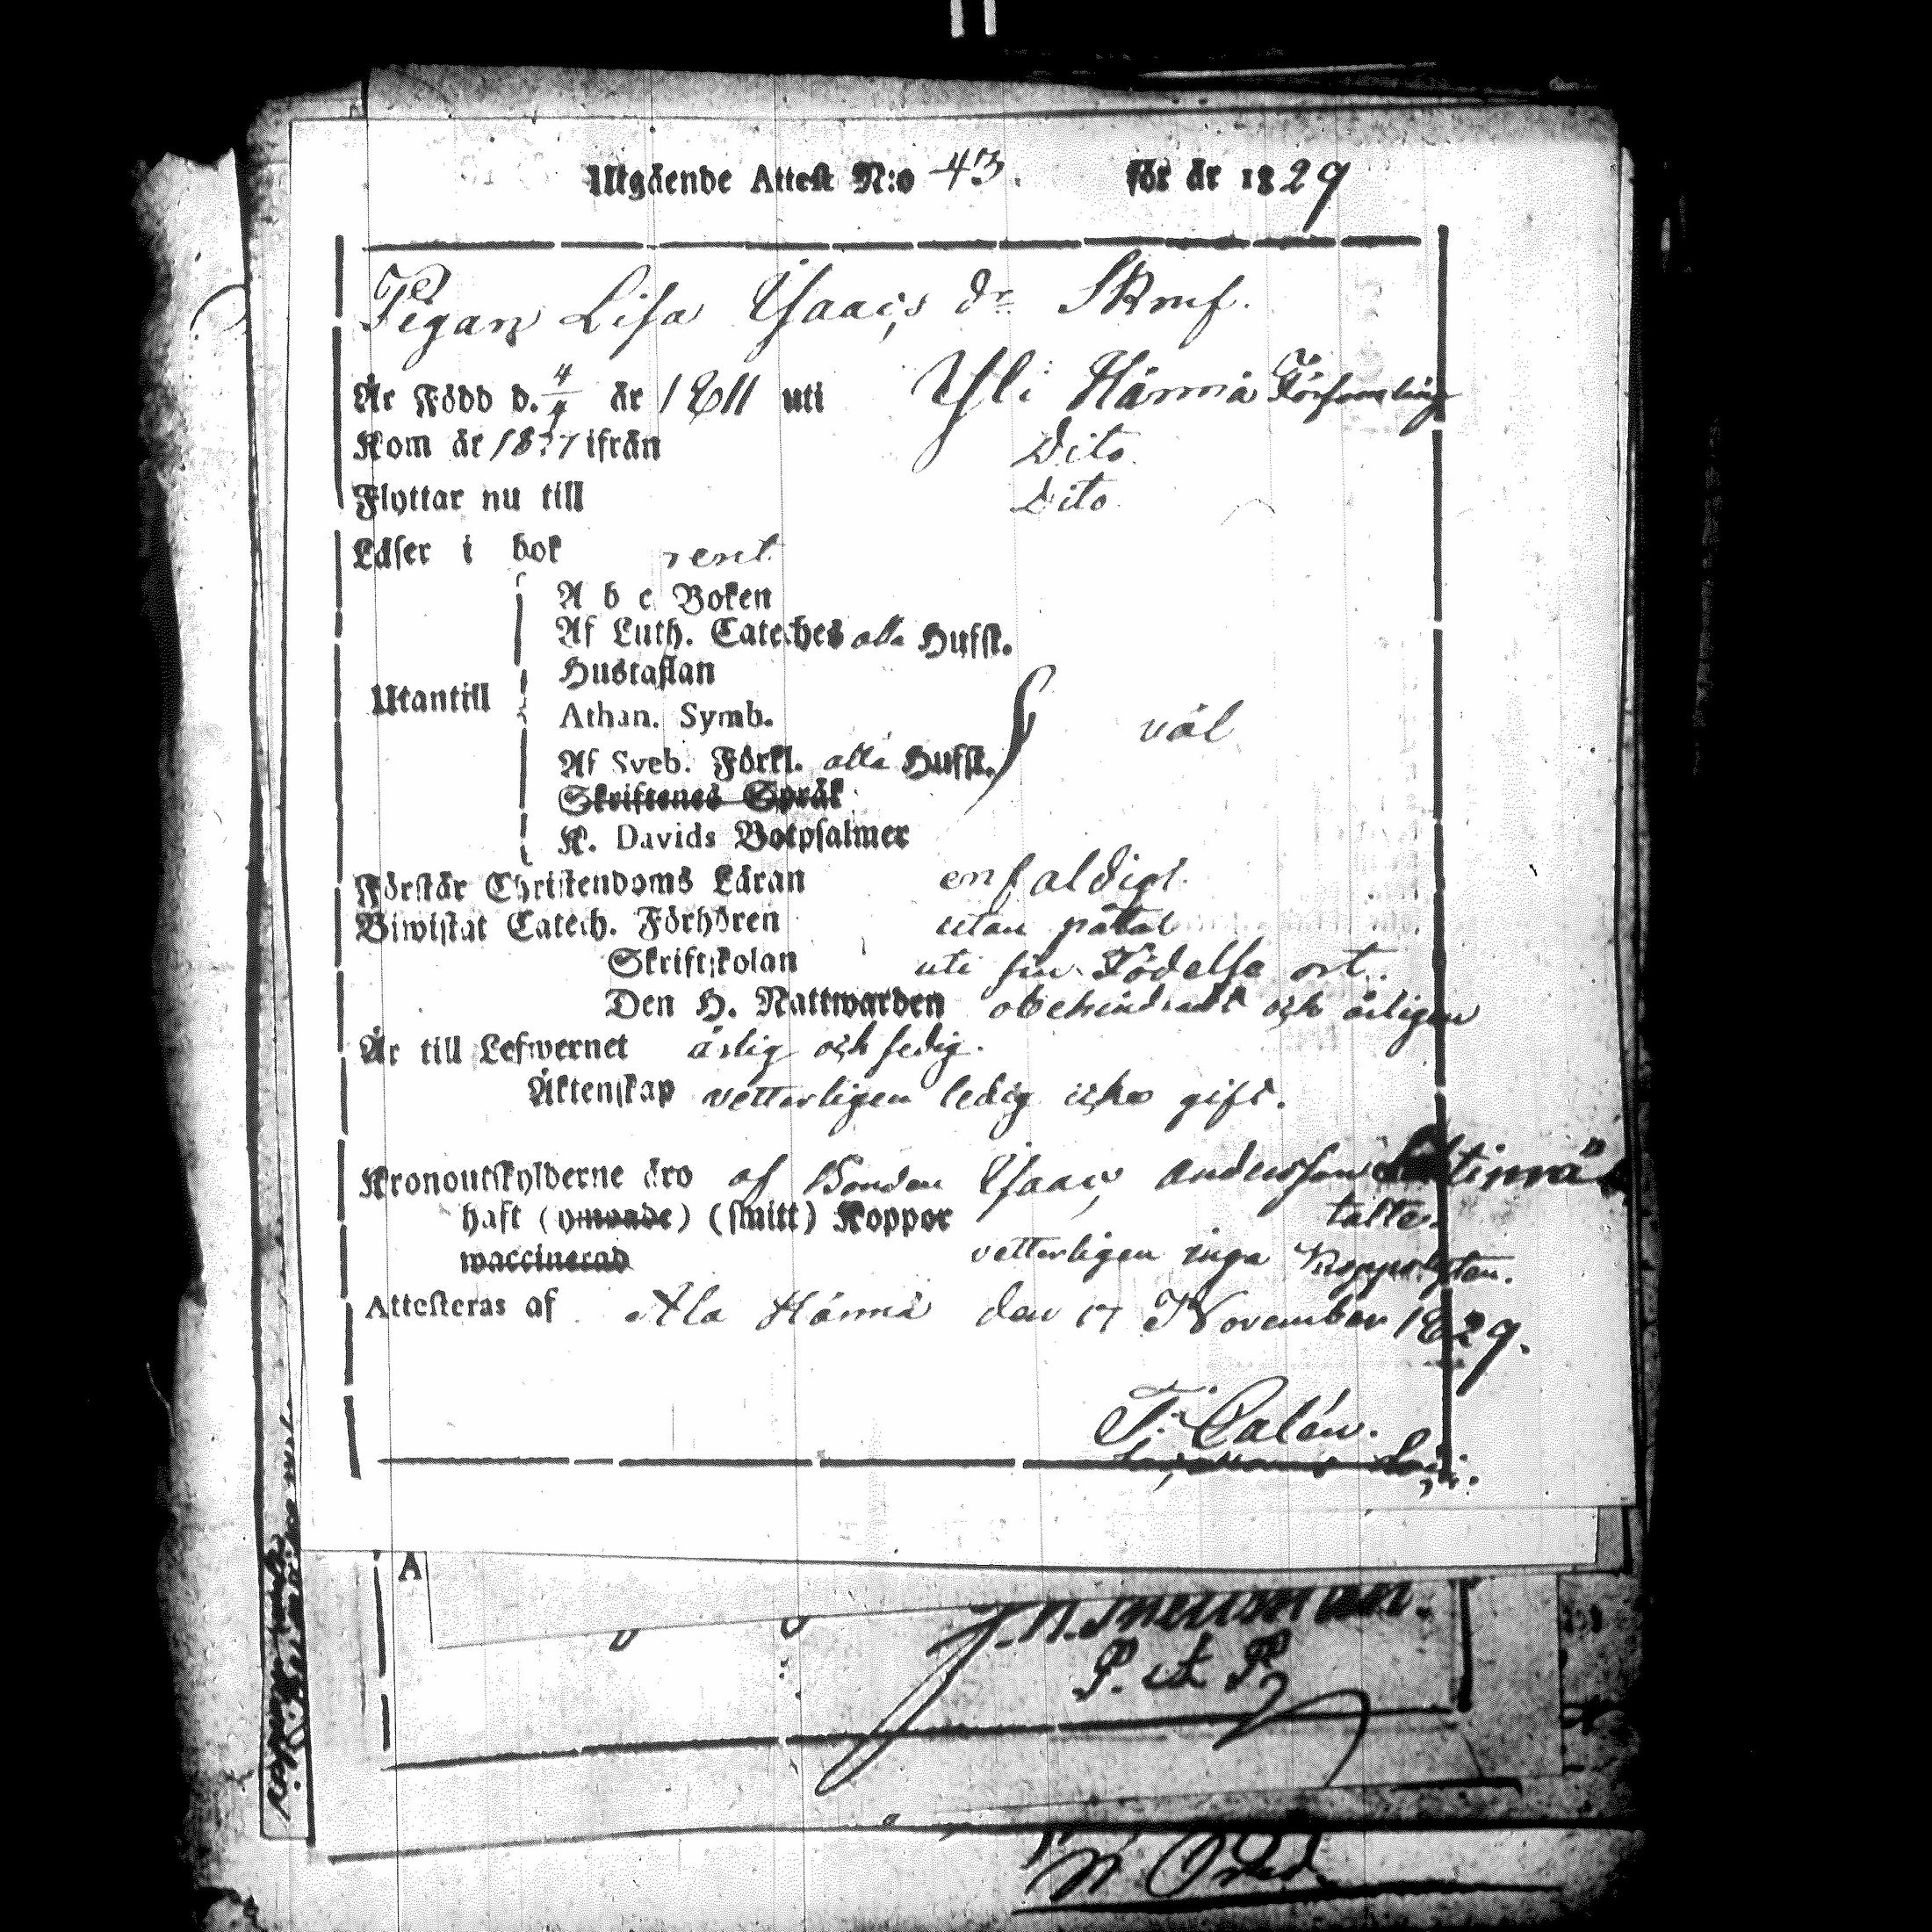 Utgående Attest N:o 43. för år 1829
Pigan Lisa Isaacs dr
Är Född d. 4/4 år 1811 uti Yli Härmä Församling
Kom år ifrån Dito
Flyttar nu till Dito
Läser i bok rent
A b c Boken
Af Luth. Cateches alla Hufst.
Hustaflan
Utantill
Athan. Symb. väl
Af Sveb. Förkl. alla Hufst.
Skriftenes Språk
K. Davids Botpsalmer
Förstår Christendoms Läran enfaldigt
Biwistat Catech. Förhören utan påtal
Skriftskolan uti sin Födelse ort.
Den H. Nattwarden obehindradt och årligen
Är till Lefwernet ärlig och sedig.
Äktenskap vetterligen ledig icke gift.
Kronoutskylderne äro af Bonden Isaac Andersson
haft (ymnade) (smitt) Koppor
waccinerad vetterligen inga
Attesteras af Ala Härmä den 17 November 1829.
T. Calén.
A
P. et P.